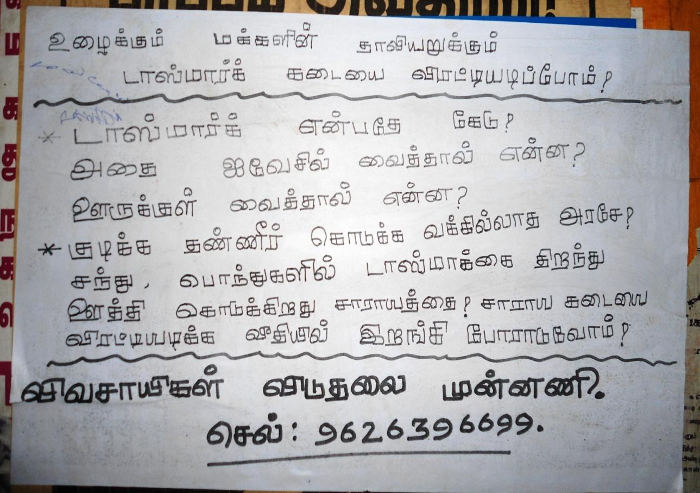 உழைக்கும் மக்களின் தாலியறுக்கும்
டாஸ்மார்க் கடையை விரட்டியடிப்போம்!
* டாஸ்மார்க் என்பதே கேடு?
அதை ஐவேசில் வைத்தால் என்ன?
ஊருக்குள் வைத்தால் என்ன?
* குடிக்க தண்ணீர் கொடுக்க வக்கில்லாத அரசே?
சந்து, பொந்துகளில் டாஸ்மாக்கை திறந்து
ஊத்தி கொடுக்கிறது சாராயத்தை? சாராய கடையை
விரட்டியடிக்க வீதியில் இறங்கி போராடுவோம்!
விவசாயிகள் விடுதலை முன்னணி.
செல்: 9626396699.